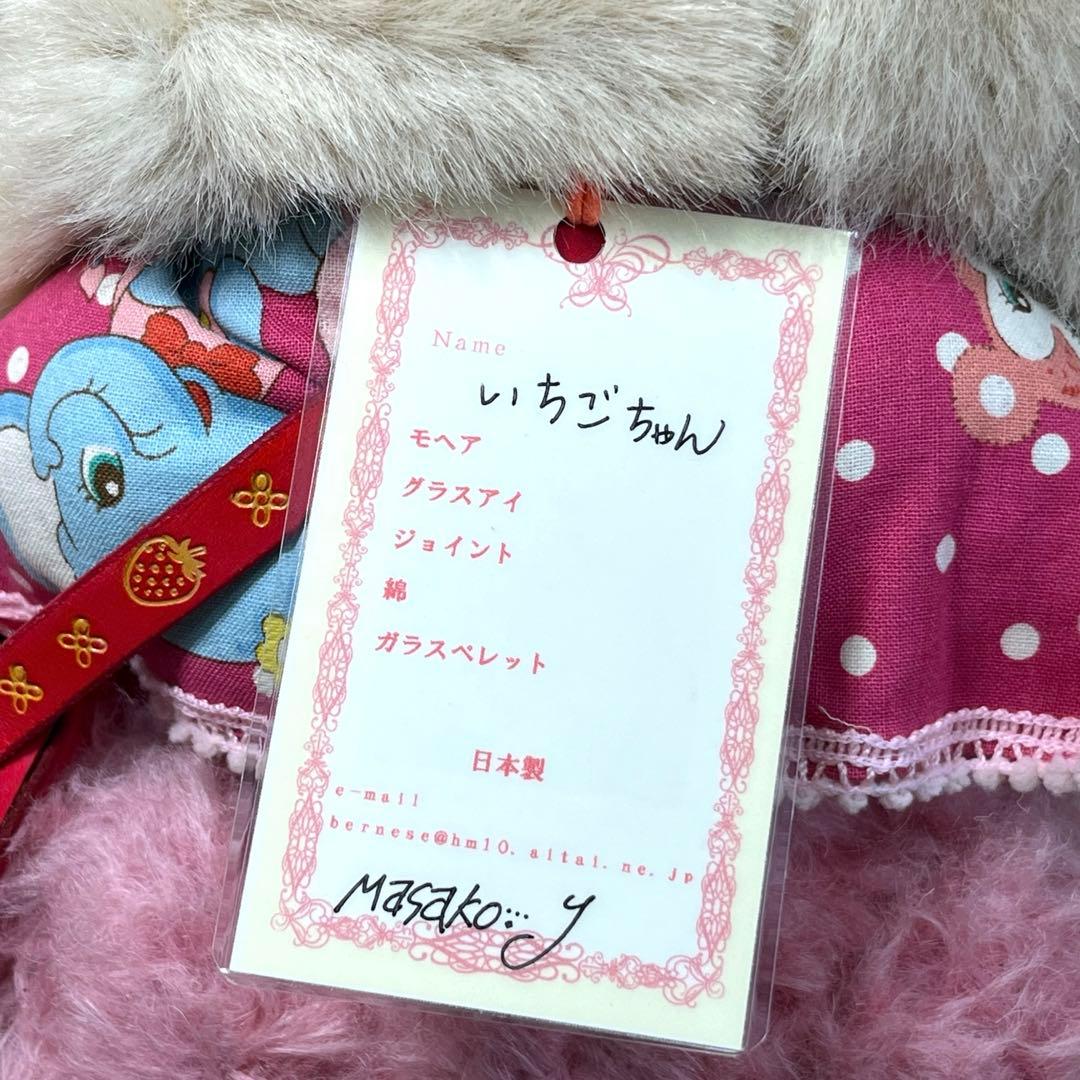 Name
いちごちゃん
モヘア
グラスアイ
ジョイント
綿
ガラスペレット
日本製
e-mail
bernese@hm10.aitai.ne.jp
Masako y